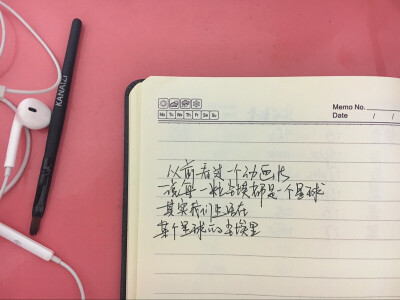 KANAIZI
Memo No.
Mo Tu We Th Fr Sa Su
Date / /
以前看过一个动画片
说每一粒尘埃都是一个星球
其实我们生活在
某个星球的尘埃里